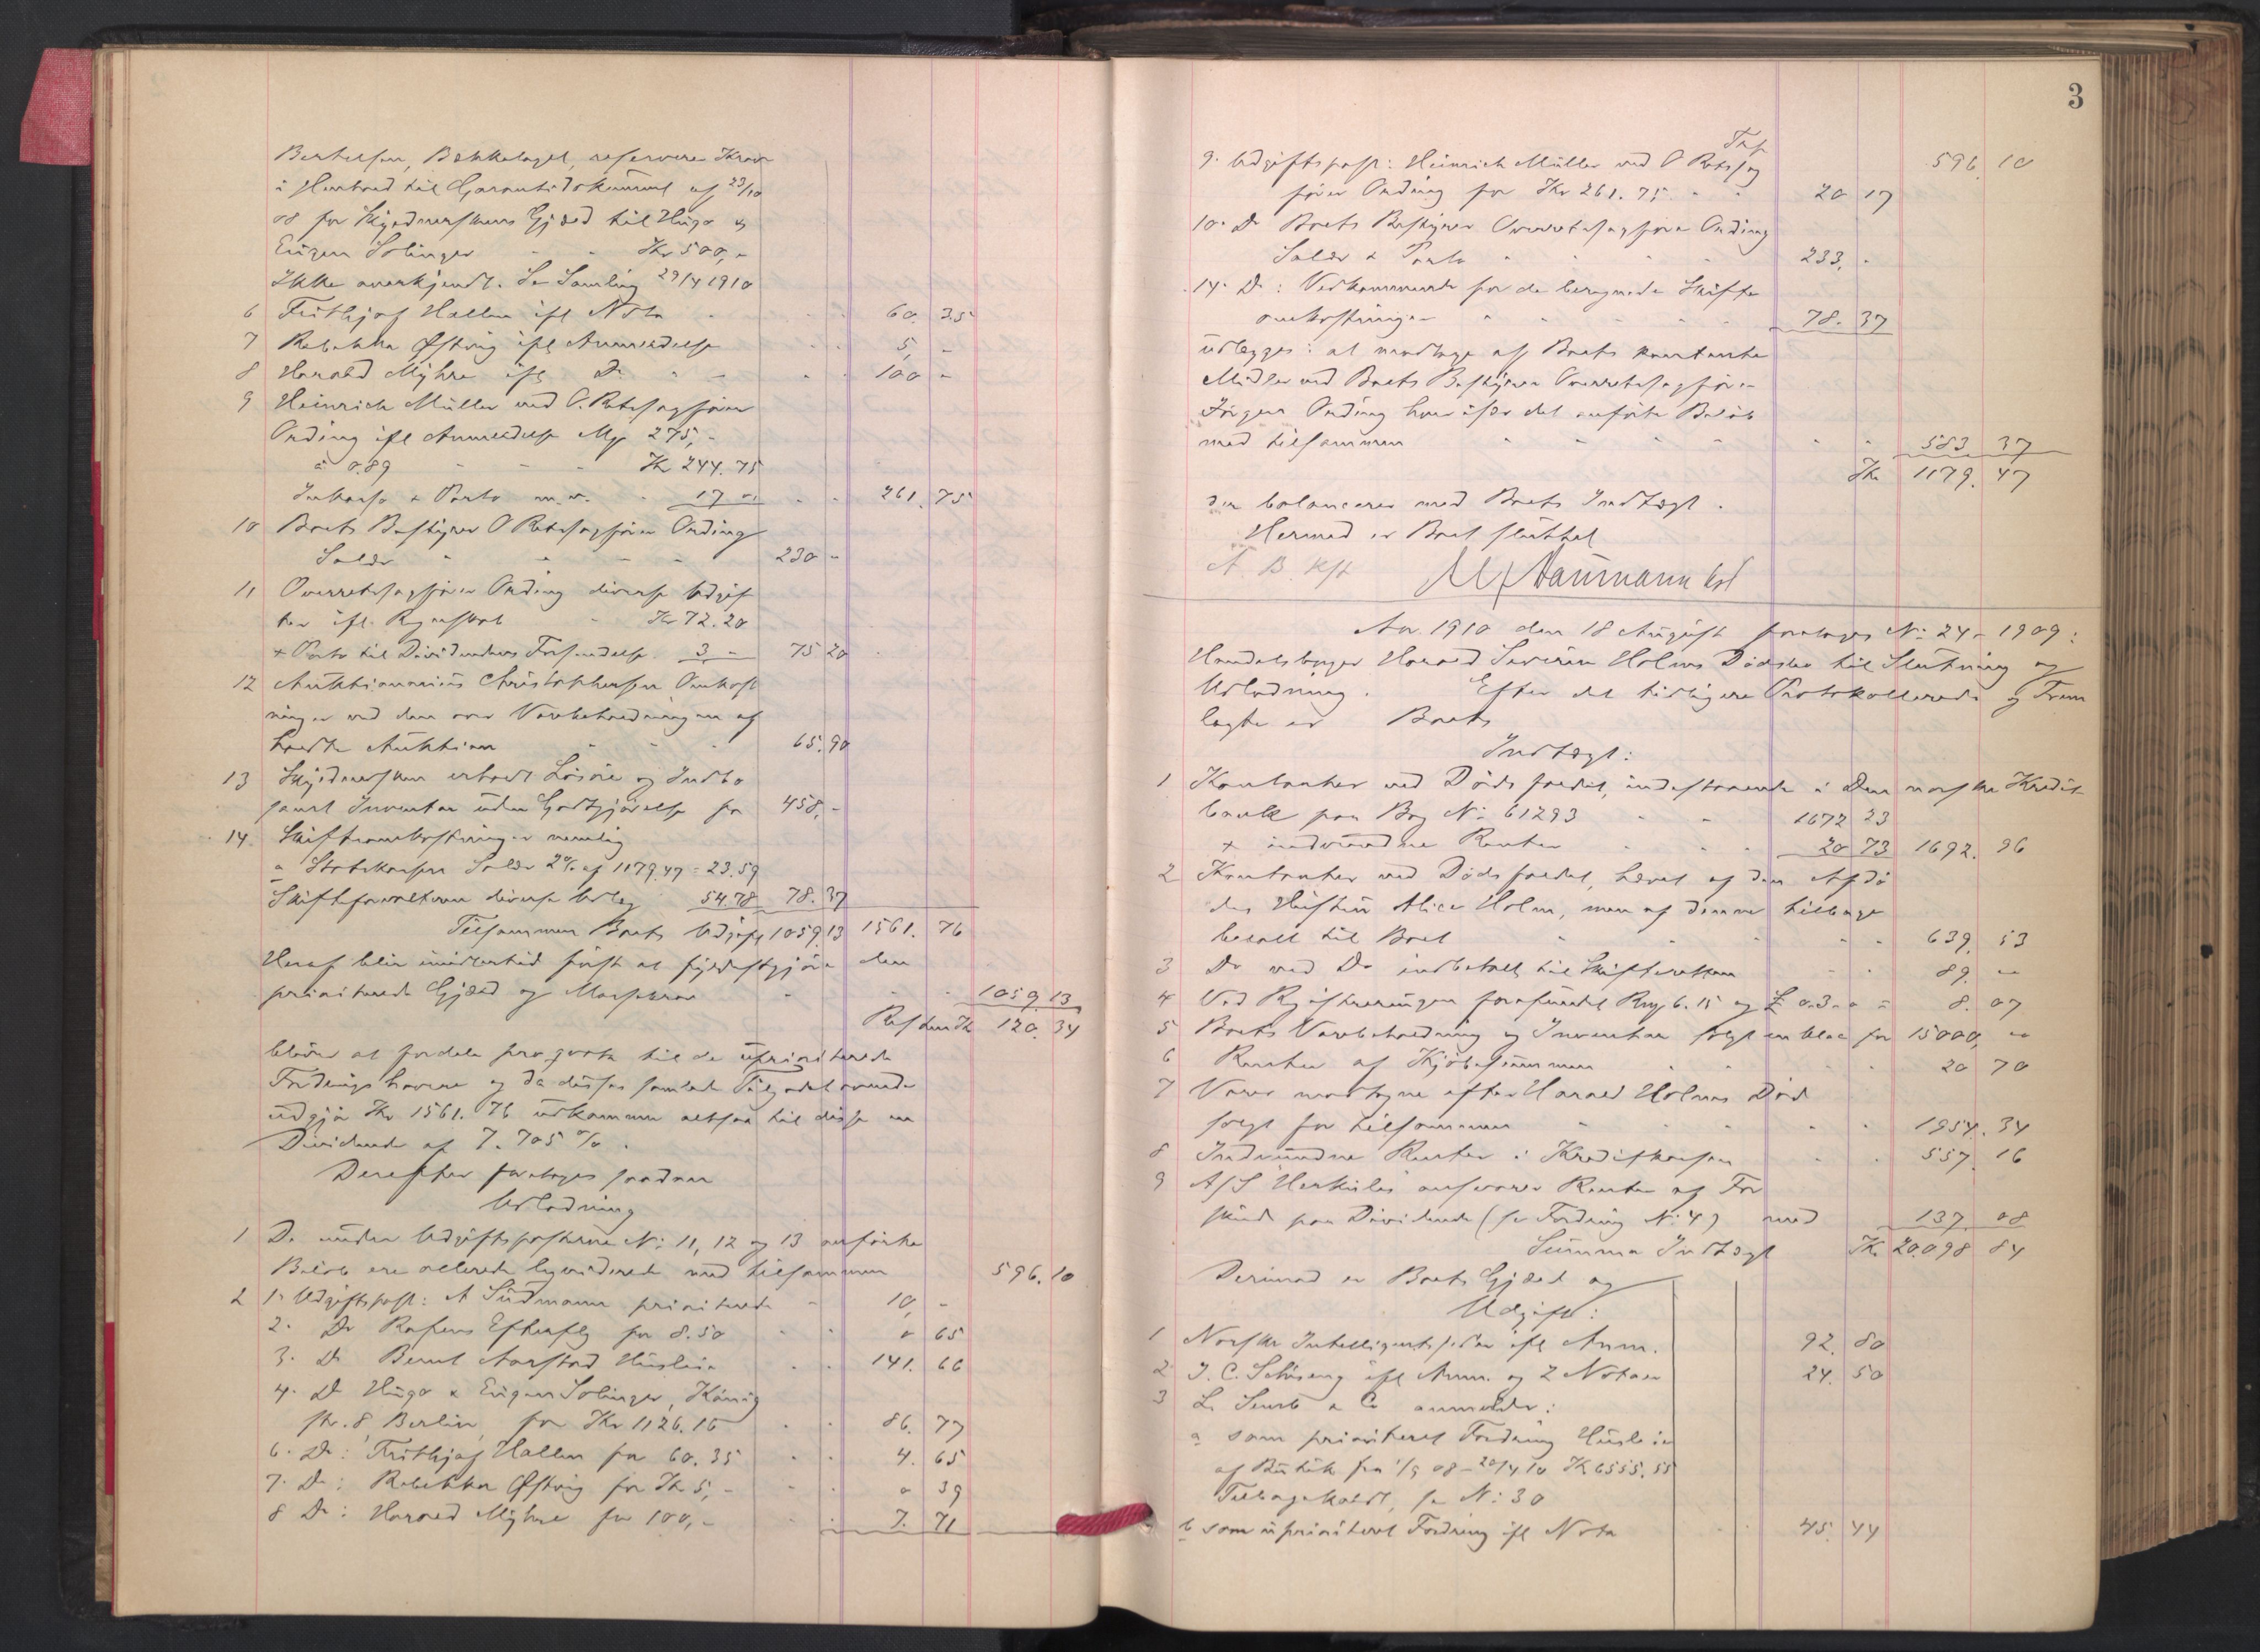 Berthelsen, Bakkelaget, reserverer Krav
i Henhold til Garantidokument af 23/10
08 for Skyldnerskens Gjæld til Hugo &
Eugen Solinger - - Kr 500,-
Ikke anerkjendt. Se Samling 29/4 1910
6 Frithjof Hallen ifl Nota - - - 60. 35
7 Rebekka Østvig ifl Anmeldelse - - 5, -
8 Harald Myhre ifl Do - - - 100 -
9 Heinrich Müller ved O. Retssagfører
Onding ifl Anmeldelse Mk 275,-
à 0.89 - - - Kr 244.75
Inkasso & Porto m. v. - 17 00 - - 261. 75
10 Boets Bestyrer O Retssagfører Onding
Salær - - - - 230 -
11 Overretssagfører Onding diverse Udgif
ter ifl. Regnskab - Kr 72.20
+ Porto til Dividendens Forsendelse 3 - 75 20
12 Auktionarius Christophersen Omkost
ninger ved den over Varebeholdningen af
holdte Auktion - - - 65. 90
13 Skyldnersken erholdt Løsøre og Indbo
samt Inventar uden Godtgjørelse for 458,-
14. Skifteomkostninger nemlig
a Statskassen Salær 2% af 1179.47 = 23.59
Skifteforvalteren diverse Udlæg 54.78 78. 37
Tilsammen Boets Udgift 1059.13 1561. 76
Heraf blir imidlertid først at fyldestgjøre den
prioriterede Gjæld og Massekrav - - - 1059 13
Resten Kr 120. 34
bliver at fordele pro qvota til de uprioriterede
Fordringshavere og da disses samlede Tilgodehavende
udgjør Kr 1561. 76 udkommer altsaa til disse en
Dividende af 7. 705 %.
Derefter foretoges saadan
Udlodning
1 De under Udgiftsposterne No 11, 12 og 13 anførte
Beløb ere allerede likviderede med tilsammen 596. 10
2 1. Udgiftspost: A Südmann prioriterede - 10, -
2. Do Rasens Efterflg for 8.50 - - 0 65
3. Do Bernt Aarstad Husleie - - 141. 66
4. Do Hugo & Eugen Solinger, König
str. 8, Berlin, for Kr 1126.15 - - 86. 77
6. Do: Frithjof Hallen for 60.35 - - 4. 65
7. Do: Rebekka Østvig for Kr 5,- - - 0 39
8 Do: Harald Myhre for 100,- - - 7. 71
3
Tnsp 596. 10
9. Udgiftspost: Heinrich Müller ved O Retssag
fører Onding for Kr 261.75. - - 20 17
10. Do Boets Bestyrer Overretssagfører Onding
Salær & Porto - - - - 233, -
14. Do: Vedkommende for de beregnede Skifte
omkostninger - - - - - 78. 37
udlægges: at modtage af Boets kontante
Midler ved Boets Bestyrer Overretssagfører
Jørgen Onding hver især det anførte Beløb
med tilsammen - - - - - - 583. 37
Kr 1179. 47
der balancerer med Boets Indtægt.
Hermed er Boet sluttet
Aar 1910 den 18 August foretoges No 24 - 1909:
Handelsborger Harald Severin Holms Dødsbo til Slutning og
Udlodning. Efter det tidligere Protokollerede og Frem
lagte er Boets
Indtægt:
1 Kontanter ved Dødsfaldet, indestaaende i Den norske Kredit
bank paa Bog No 61293 - - 1672 23
+ indvundne Renter - - - 20 73 1692. 96
2 Kontanter ved Dødsfaldet, hævet af den Afdø
des Hustru Alice Holm, men af denne tilbage
betalt til Boet - - - - - 639. 53
3 Do ved Do indbetalt til Skifteretten - - 89. -
4 Ved Registreringen forefundet Rmk 6.15 og £ 0-3-0 = 8. 07
5 Boets Varebeholdning og Inventar solgt en bloc for 15000, -
6 Renter af Kjøbesummen - - - - 20 70
7 Varer modtagne efter Harald Holms Død
solgt for tilsammen - - - - - 1954. 34
8 Indvundne Renter i Kreditkassen - - 557. 16
9 A/S Herkules ansvarer Renter af For
skud paa Dividende (se Fordring No 4) med 137. 08
Summa Indtægt Kr 20.098 84
Derimod er Boets Gjæld og
Udgift:
1 Norske Intelligentssedler ifl Anm. 92. 80
2 24. 50
3 anmelder:
a som prioriteret Fordring Husleie
af Butik fra 1/9 08 - 20/4 10 Kr 6555.55
Tilbagekaldt, se No 30
b som uprioriteret Fordring ifl Nota - - 45. 44